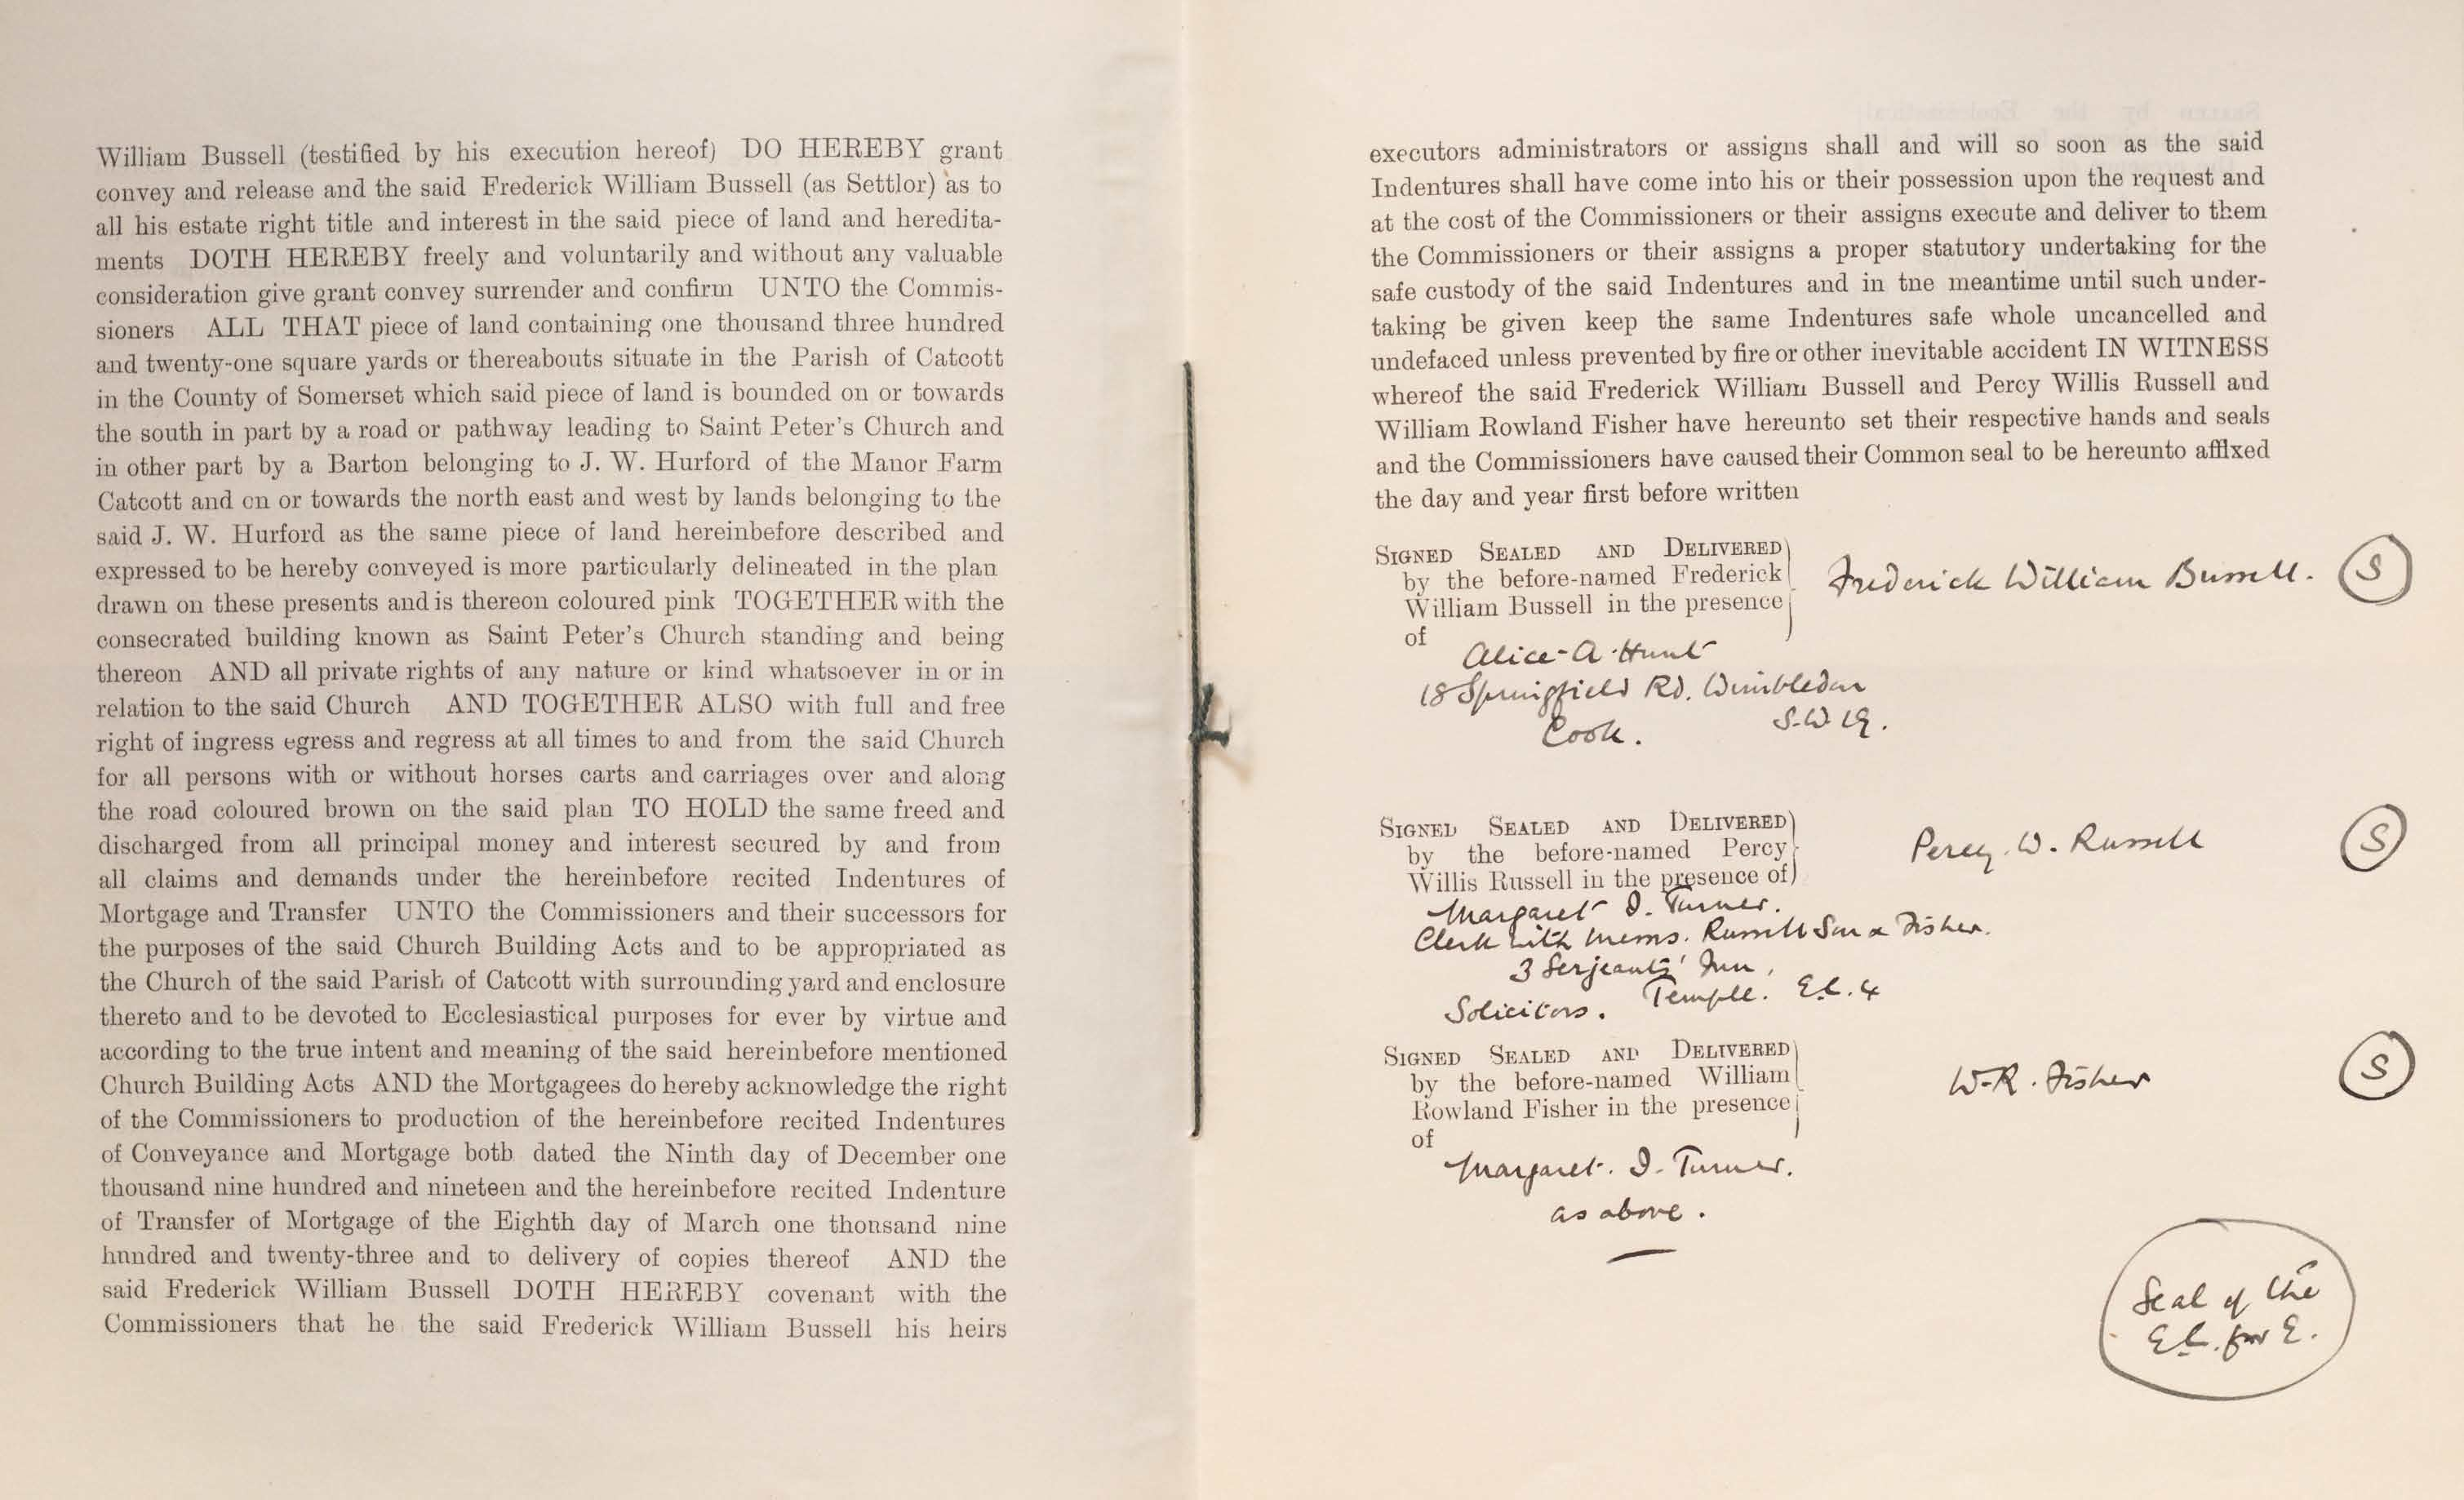 William Bussell (testified by his execution hereof) DO HEREBY grant
convey and release and the said Frederick William Bussell (as Settlor) as to
all his estate right title and interest in the said piece of land and heredita-
ments DOTH HEREBY freely and voluntarily and without any valuable
consideration give grant convey surrender and confirm UNTO the Commis-
sioners ALL THAT piece of land containing one thousand three hundred
and twenty-one square yards or thereabouts situate in the Parish of Catcott
in the County of Somerset which said piece of land is bounded on or towards
the south in part by a road or pathway leading to Saint Peter's Church and
in other part by a Barton belonging to J. W. Hurford of the Manor Farm
Catcott and cn or towards the north east and west by lands belonging to the
said J. W. Hurford as the same piece of land hereinbefore described and
expressed to be hereby conveyed is more particularly delineated in the plan
drawn on these presents and is thereon coloured pink TOGETHER with the
consecrated building known as Saint Peter's Church standing and being
thereon AND all private rights of any nature or kind whatsoever in or in
relation to the said Church AND TOGETHER ALSO with full and free
right of ingress egress and regress at all times to and from the said Church
for all persons with or without horses carts and carriages over and along
the road coloured brown on the said plan TO HOLD the same freed and
discharged from all principal money and interest secured by and from
all claims and demands under the hereinbefore recited Indentures of
Mortgage and Transfer UNTO the Commissioners and their successors for
the purposes of the said Church Building Acts and to be appropriated as
the Church of the said Parish of Catcott with surrounding yard and enclosure
thereto and to be devoted to Ecclesiastical purposes for ever by virtue and
according to the true intent and meaning of the said hereinbefore mentioned
Church Building Acts AND the Mortgagees do hereby acknowledge the right
of the Commissioners to production of the hereinbefore recited Indentures
of Conveyance and Mortgage both dated the Ninth day of December one
thousand nine hundred and nineteen and the hereinbefore recited Indenture
of Transfer of Mortgage of the Eighth day of March one thousand nine
hundred and twenty-three and to delivery of copies thereof AND the
said Frederick William Bussell DOTH HEREBY covenant with the
Commissioners that he the said Frederick William Bussell his heirs
executors administrators or assigns shall and will so soon as the said
Indentures shall have come into his or their possession upon the request and
at the cost of the Commissioners or their assigns execute and deliver to them
the Commissioners or their assigns a proper statutory undertaking for the
safe custody of the said Indentures and in tne meantime until such under-
taking be given keep the same Indentures safe whole uncancelled and
undefaced unless prevented by fire or other inevitable accident IN WITNESS
whereof the said Frederick William Bussell and Percy Willis Russell and
William Rowland Fisher have hereunto set their respective hands and seals
and the Commissioners have caused their Common seal to be hereunto affixed
the day and year first before written
SIGNED SEALED AND DELIVERED
by the before-named Frederick
William Bussell in the presence
of
Frederick William Bussell. S
Alice A Hunt
18 Springfield Rd. Wimbledon
S.W 19.
Cook.
SIGNED SEALED AND DELIVERED
by the before-named Percy
Willis Russell in the presence of
Percy. W. Russell S
Margaret D. Turner.
Clerk with Messrs. Russell Son & Fisher.
3 Serjeants' Inn,
Temple. E.C. 4
Solicitors.
SIGNED SEALED AND DELIVERED
by the before-named William
Rowland Fisher in the presence
of
W. R. Fisher S
Margaret. D. Turner.
as above.
Seal of the
E.C. for E.